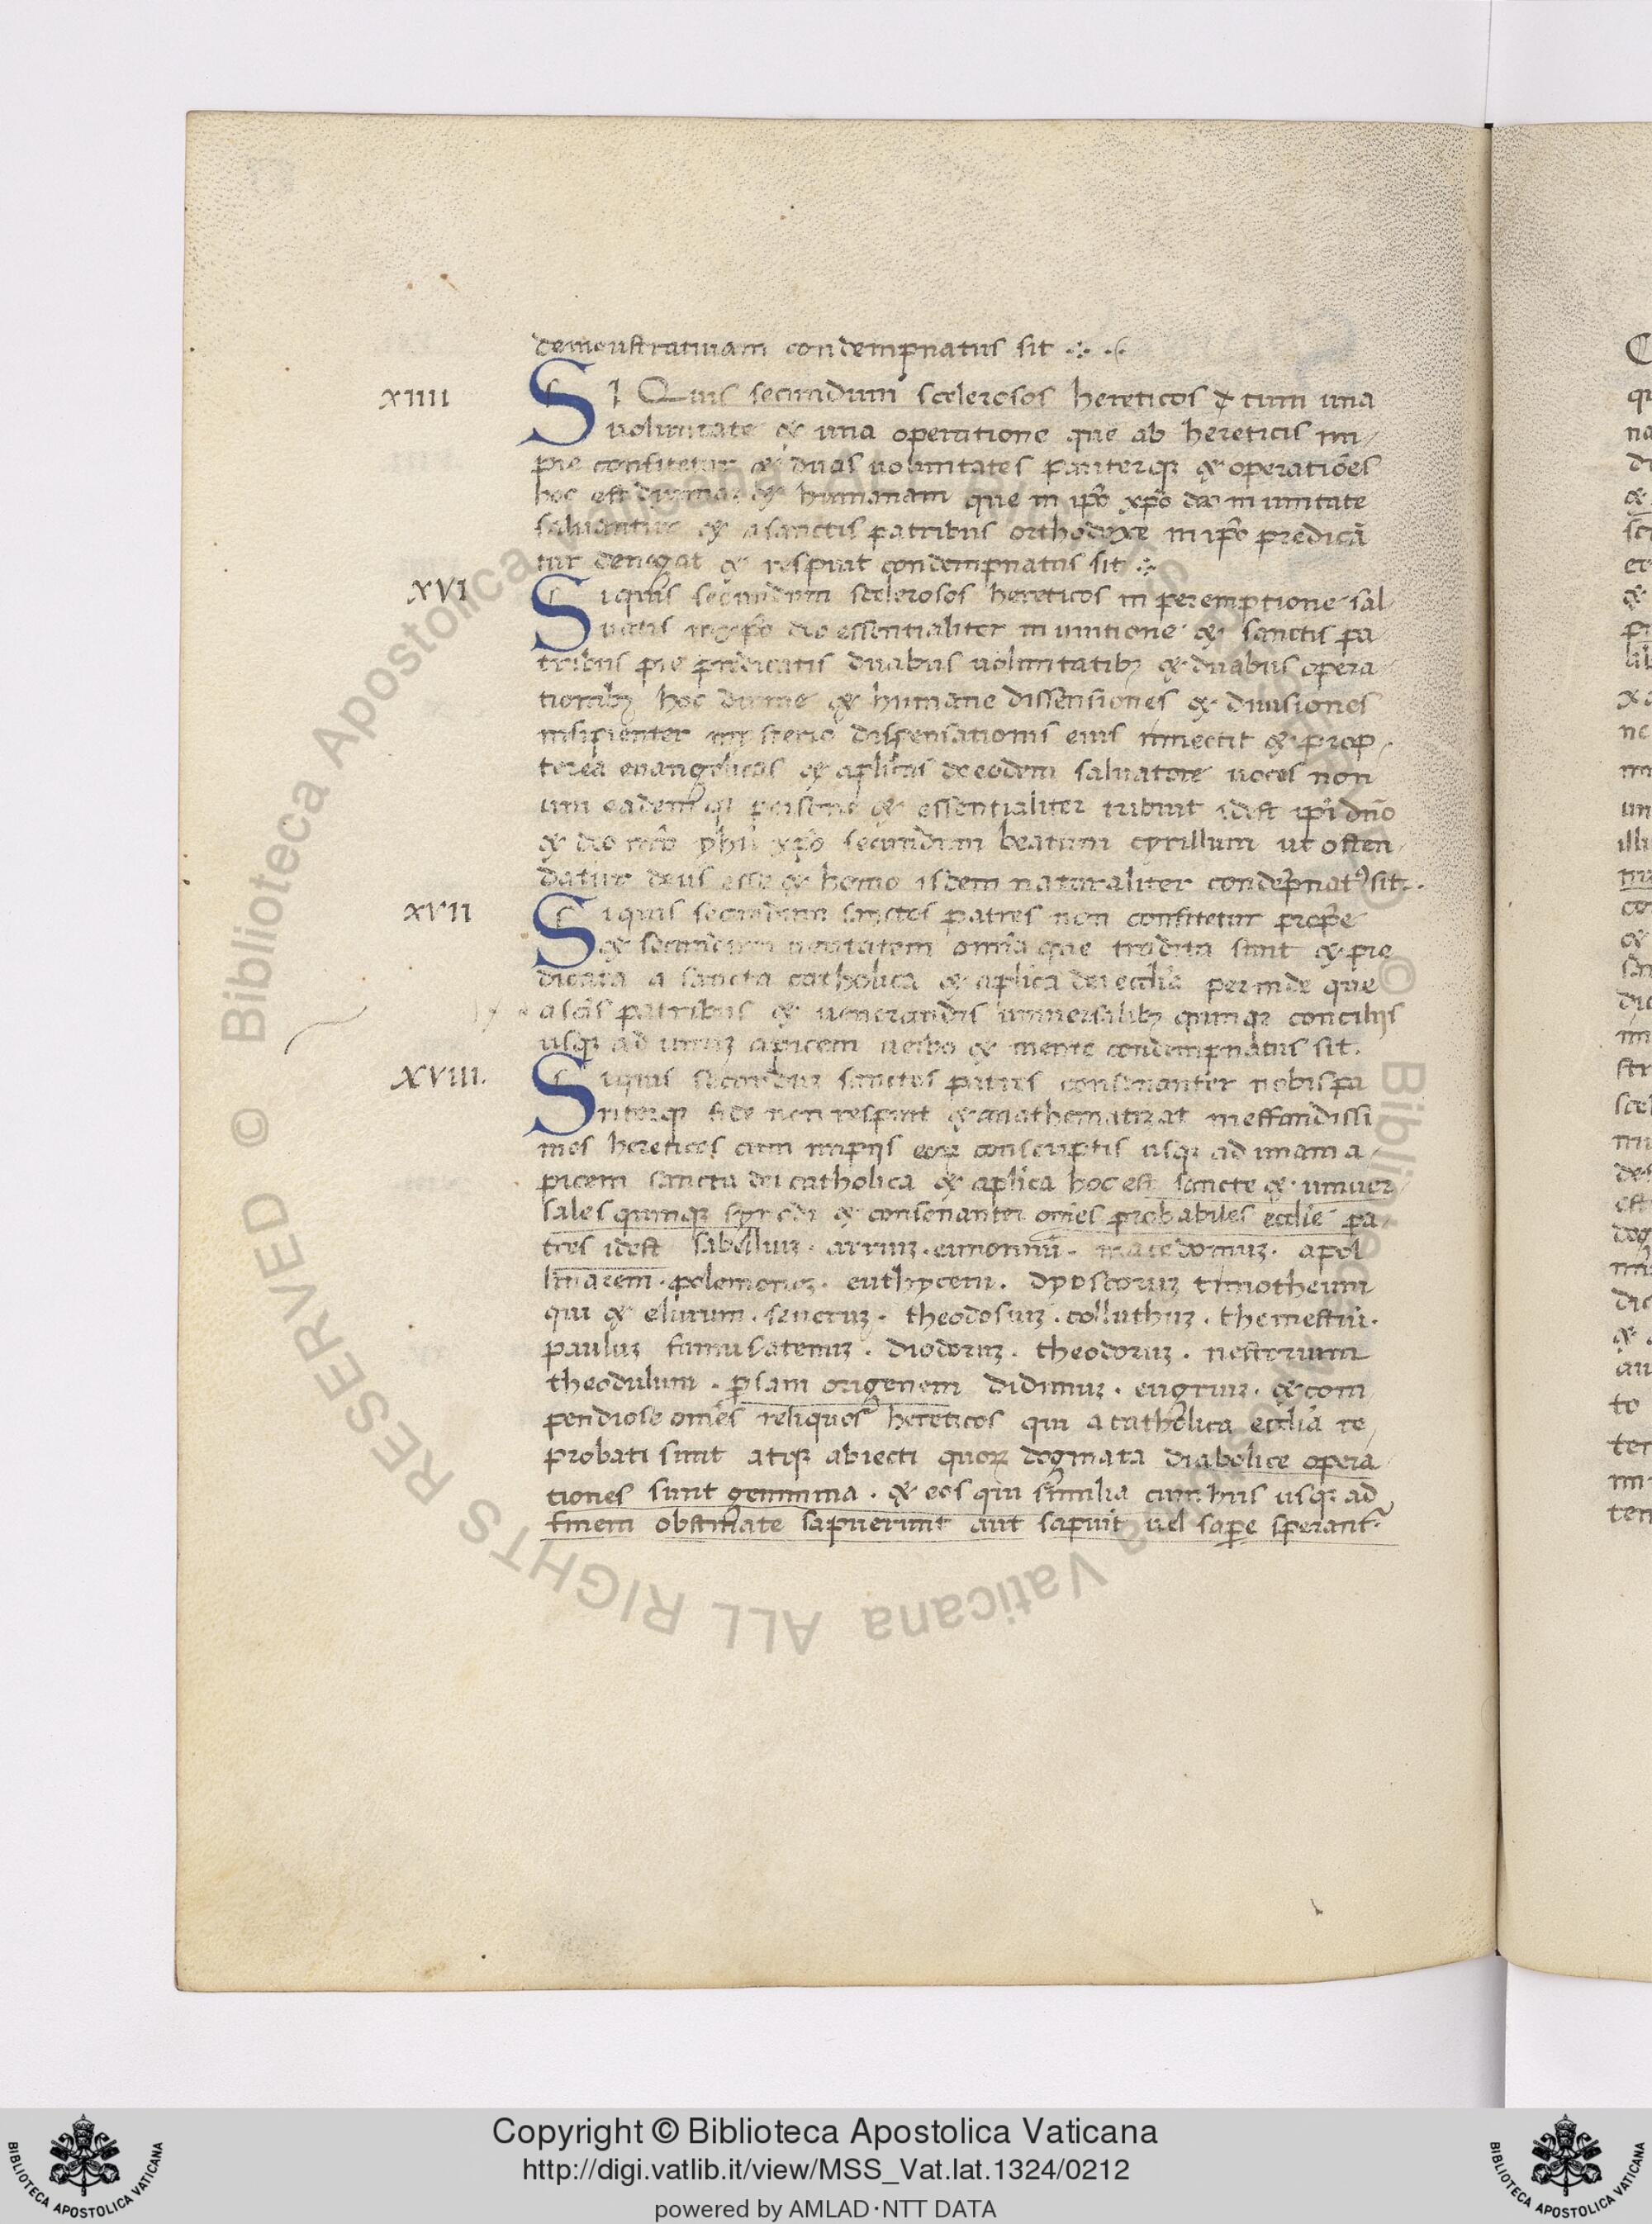 demonstratiuam condempnatus sit
XIIII
SI Quis secundum scelerosos hereticos & cum una
uoluntate & una operatione que ab hereticis im
pie confitetur & duas uoluntates pariterqꝫ & operatiōes
hoc est diuinā & humanam que in ip̄o xp̄o deo in unitate
saluantur & a sanctis patribus orthodoxe in ip̄o predicā
tur denegat & respuit condempnatus sit
XVI
Siquis secundum scelerosos hereticos in peremptione sal
uatis in xp̄o dō essentialiter in unitione & sanctis pa
tribus pie predicatis duabus uoluntatibꝫ & duabus opera
tionibꝫ hoc diuine & humane dissensiones & diuisiones
insipienter misterio dispensationis eius innectit & prop
terea euangelicas & ap̄licas de eodem saluatore uoces non
uni eademqꝫ persone & essentialiter tribuit idest ip̄i dn̄o
& dō nr̄o yhū xp̄o secundum beatum cyrillum ut osten
datur deus esse & homo isdem naturaliter condēpnatꝰ sit.
XVII
Siquis secundum sanctos patres non confitetur prop̄e
& secundum ueritatem om̄ia que tradita sunt & pre
dicata a sancta catholica & ap̄lica dei ecclīa perinde que
a scīs patribus & uenerandis uniuersalibꝫ quinqꝫ concilijs
usqꝫ ad unuꝫ apicem uerbo & mente condempnatus sit.
XVIII.
Siquis secunduꝫ sanctos patres consonanter nobis pa
riterqꝫ fide non respuit & anathematizat nieffandissi
mos hereticos cum impijs eoꝝ conscriptis usqꝫ ad unam a
picem sancta dei catholica & ap̄lica hoc est sancte & uniuer
sales quinqꝫ synodi & consonanter om̄es probabiles ecclīe pa
tres idest sabelliuꝫ. arriuꝫ. eunomiū. macedoniuꝫ. apol
linarem. polemoneꝫ. euthycem. dyoscoruꝫ timotheum
qui & elurum. seueruꝫ. theodosiuꝫ. colluthuꝫ. themestiū.
pauluꝫ samusatenuꝫ. diodoruꝫ. theodoruꝫ. nestorium
theodulum. p̱sam origenem didimuꝫ. eugriuꝫ. & com
pendiose om̄es reliquos hereticos qui a catholica ecclīa re
probati sunt atqꝫ abiecti quoꝝ dogmata diabolice opera
tiones sunt gemmina. & eos qui similia cum hiis usqꝫ ad
finem obstinate sapuerunt aut sapuit uel sap̱e sperant
Copyright © Biblioteca Apostolica Vaticana
http://digi.vatlib.it/view/MSS_Vat.lat.1324/0212
powered by AMLAD·NTT DATA
BIBLIOTECA APOSTOLICA VATICANA
BIBLIOTECA APOSTOLICA VATICANA